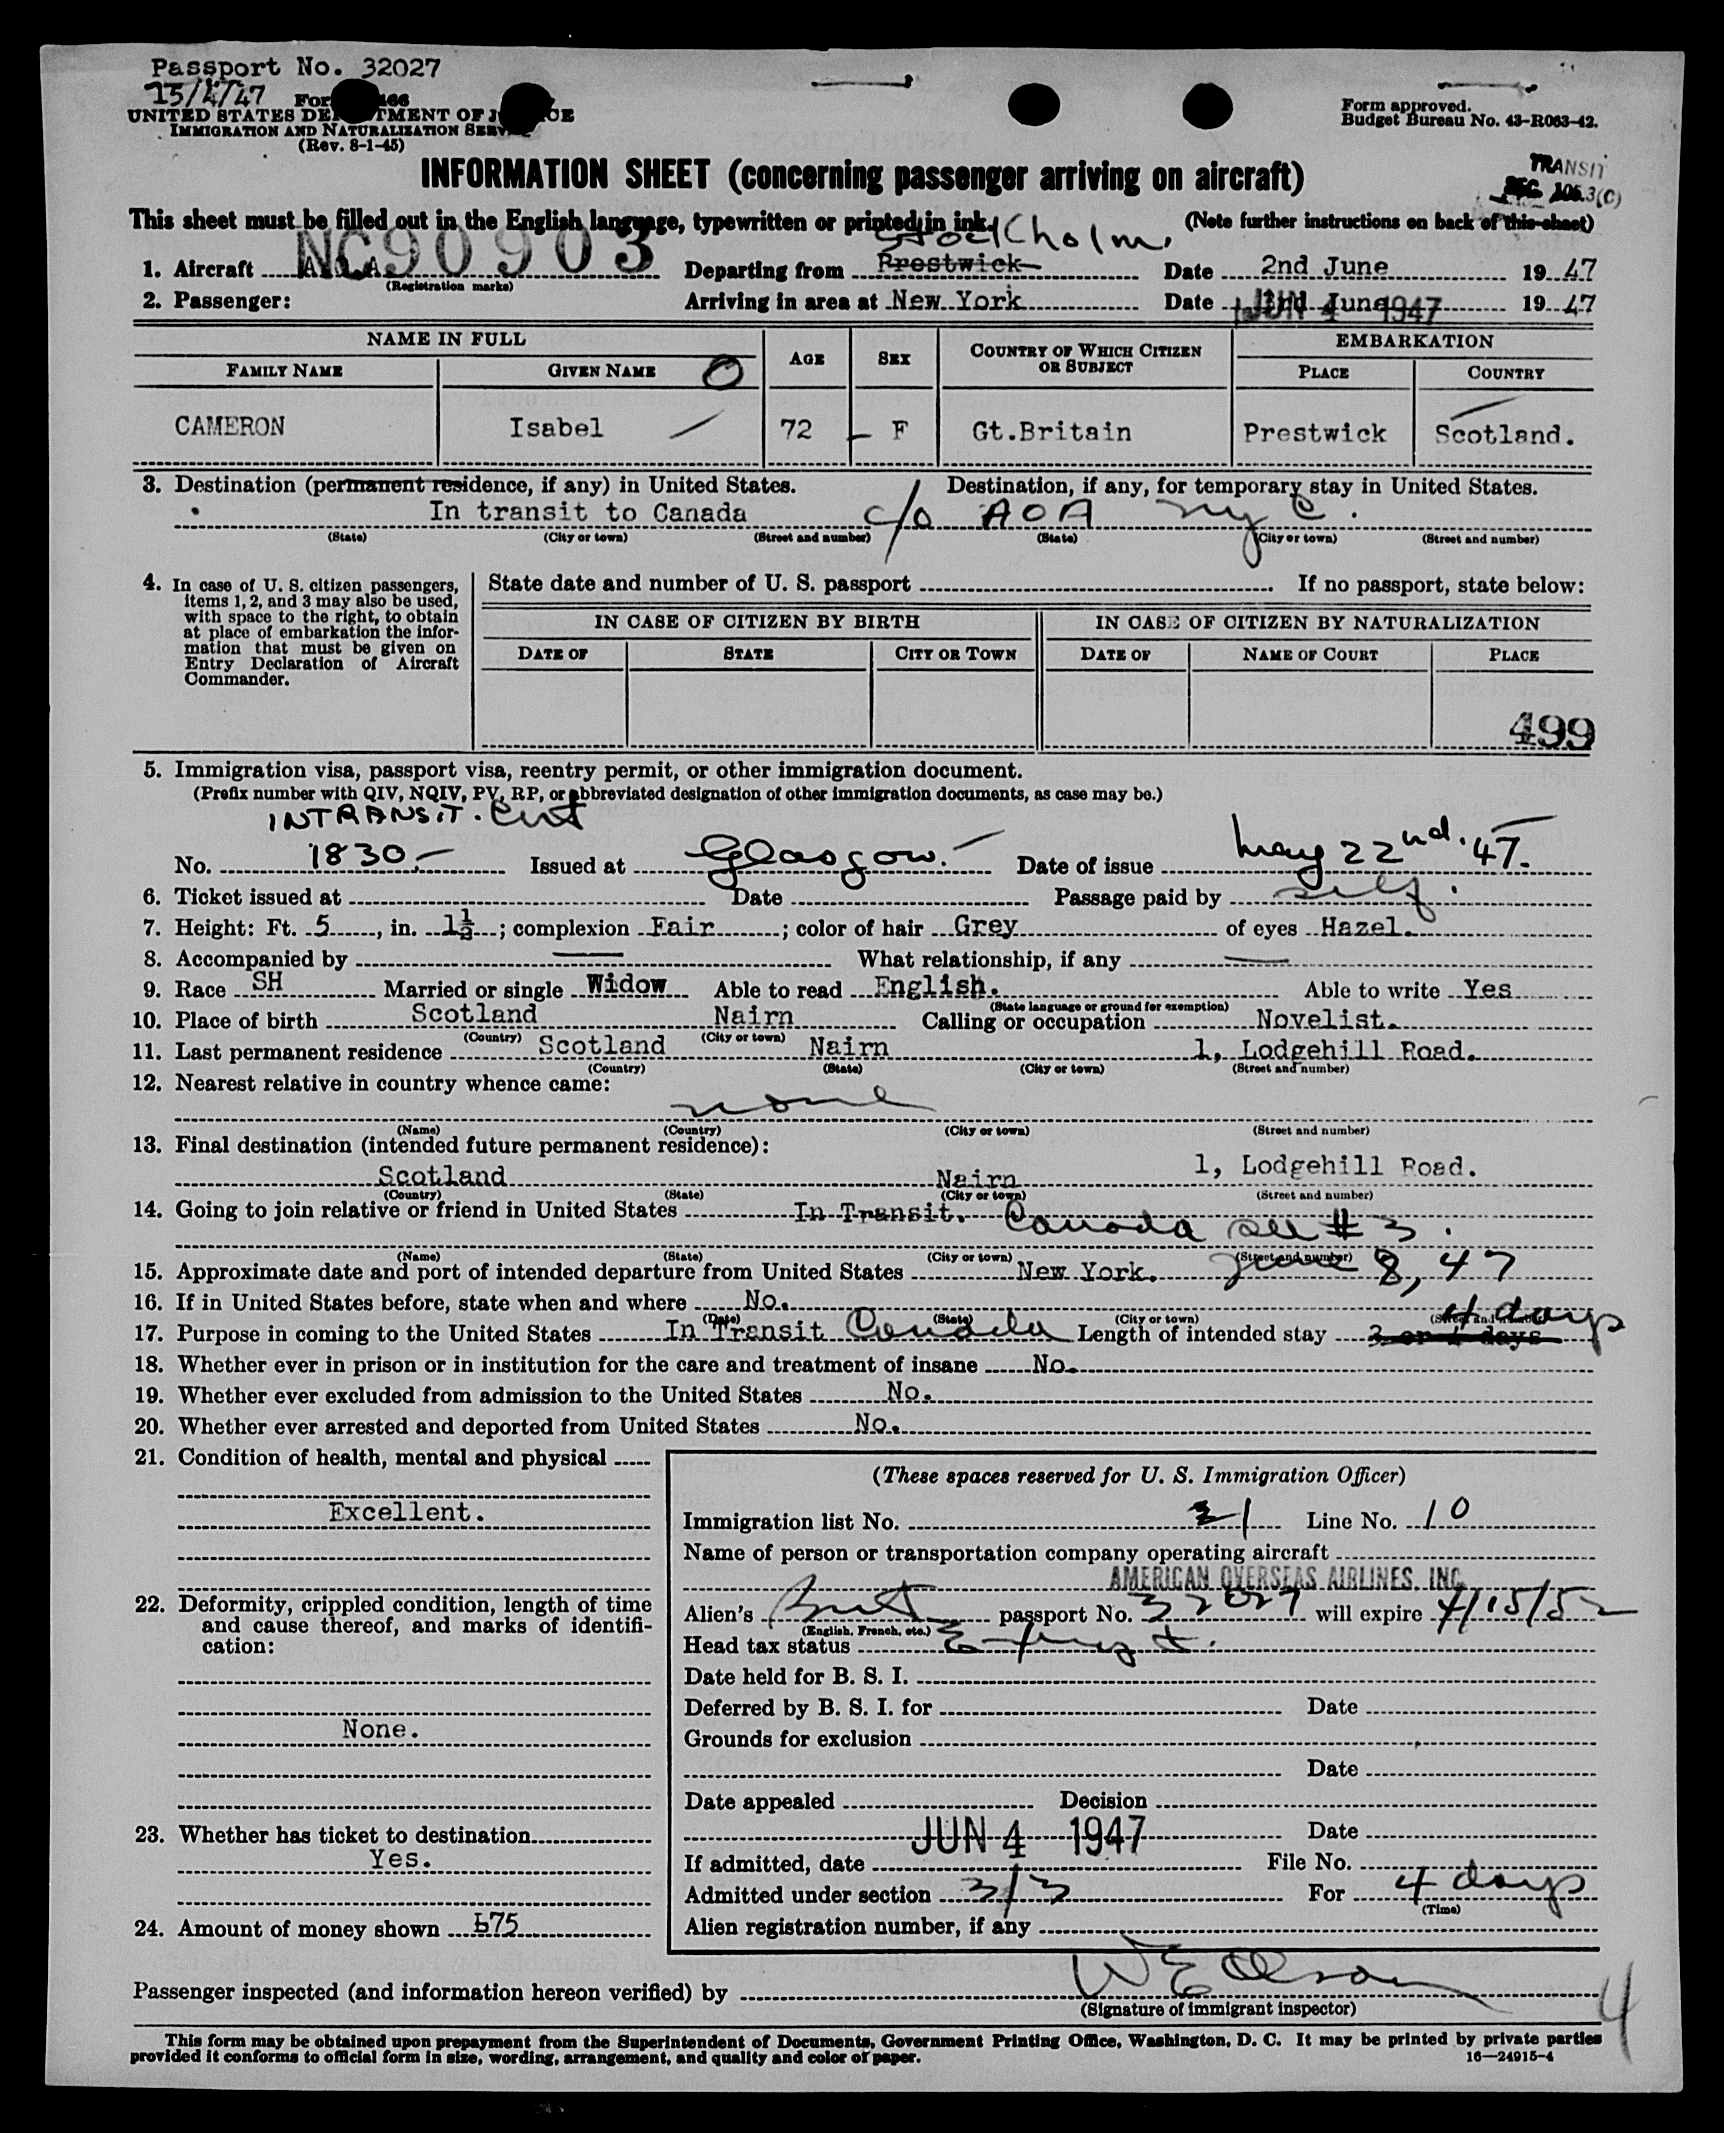 Passport No. 32027
15/4/47 For 466
UNITED STATES DEPARTMENT OF JUSTICE
IMMIGRATION AND NATURALIZATION SERVICE
(Rev. 8-1-45)
Form approved.
Budget Bureau No. 43-R063-42.
INFORMATION SHEET (concerning passenger arriving on aircraft)
TRANSIT
SEC 3(c)
This sheet must be filled out in the English language, typewritten or printed in ink. (Note further instructions on back of this sheet)
Stockholm.
1. Aircraft A.O.A. NC90903 Departing from Prestwick Date 2nd June 1947
(Registration marks)
2. Passenger: Arriving in area at New York Date 3rd June JUN 4 1947 1947
NAME IN FULL AGE SEX COUNTRY OF WHICH CITIZEN OR SUBJECT EMBARKATION
FAMILY NAME GIVEN NAME O PLACE COUNTRY
CAMERON Isabel 72 F Gt.Britain Prestwick Scotland.
3. Destination (permanent residence, if any) in United States. Destination, if any, for temporary stay in United States.
In transit to Canada c/o AOA NYC.
(State) (City or town) (Street and number) (State) (City or town) (Street and number)
4. In case of U. S. citizen passengers, items 1, 2, and 3 may also be used, with space to the right, to obtain at place of embarkation the information that must be given on Entry Declaration of Aircraft Commander.
State date and number of U. S. passport If no passport, state below:
IN CASE OF CITIZEN BY BIRTH IN CASE OF CITIZEN BY NATURALIZATION
DATE OF STATE CITY OR TOWN DATE OF NAME OF COURT PLACE
499
5. Immigration visa, passport visa, reentry permit, or other immigration document.
(Prefix number with QIV, NQIV, PV, RP, or abbreviated designation of other immigration documents, as case may be.)
INTRANSIT. Cert
No. 1830 Issued at Glasgow. Date of issue May 22nd. 47.
6. Ticket issued at Date Passage paid by self.
7. Height: Ft. 5, in. 1½; complexion Fair; color of hair Grey of eyes Hazel.
8. Accompanied by — What relationship, if any —
9. Race SH Married or single Widow Able to read English. Able to write Yes
(State language or ground for exemption)
10. Place of birth Scotland Nairn Calling or occupation Novelist.
(Country) (City or town)
11. Last permanent residence Scotland Nairn 1, Lodgehill Road.
(Country) (State) (City or town) (Street and number)
12. Nearest relative in country whence came:
none
(Name) (Country) (City or town) (Street and number)
13. Final destination (intended future permanent residence):
Scotland Nairn 1, Lodgehill Road.
(Country) (State) (City or town) (Street and number)
14. Going to join relative or friend in United States In Transit. Canada see # 3.
(Name) (State) (City or town) (Street and number)
15. Approximate date and port of intended departure from United States New York. June 8, 47
16. If in United States before, state when and where No.
(Date) (State) (City or town) (Street and number)
4 days
17. Purpose in coming to the United States In Transit Canada Length of intended stay 3 or 4 days
18. Whether ever in prison or in institution for the care and treatment of insane No.
19. Whether ever excluded from admission to the United States No.
20. Whether ever arrested and deported from United States No.
21. Condition of health, mental and physical
Excellent.
22. Deformity, crippled condition, length of time and cause thereof, and marks of identification:
None.
23. Whether has ticket to destination
Yes.
24. Amount of money shown £75
(These spaces reserved for U. S. Immigration Officer)
Immigration list No. 21 Line No. 10
Name of person or transportation company operating aircraft
AMERICAN OVERSEAS AIRLINES, INC.
Alien's Brit passport No. 32027 will expire 4/15/52
(English, French, etc.)
Head tax status Exempt.
Date held for B. S. I.
Deferred by B. S. I. for Date
Grounds for exclusion
Date
Date appealed Decision
JUN 4 1947 Date
If admitted, date File No.
Admitted under section 3/3 For 4 days
(Time)
Alien registration number, if any
Passenger inspected (and information hereon verified) by W E Olson
(Signature of immigrant inspector)
4
This form may be obtained upon prepayment from the Superintendent of Documents, Government Printing Office, Washington, D. C. It may be printed by private parties
provided it conforms to official form in size, wording, arrangement, and quality and color of paper.
16—24915-4